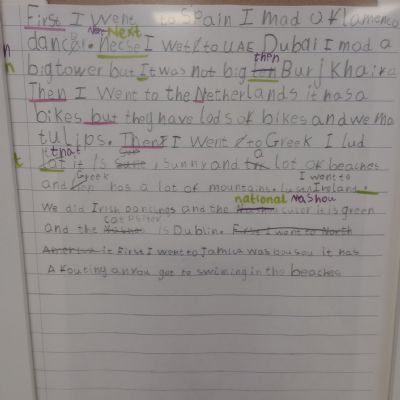 First I went to Spain I mad a flamenco
dancer. Next I wet to UAE Dubai I mad a
big tower but It was not big then Burj Khaira
Then I went to the Netherlands it has a
bikes but they have lods of bikes and we ma
tulips. Then I went to Greek I lud
that it is sunny and a lot of beaches
and Greek has a lot of mountains. I went to Ireland.
We did Irish dancings and the national culer it is green
and the is Dublin. First I went to North
America it First I went to Jamica was it has
A got to swiming in the beaches